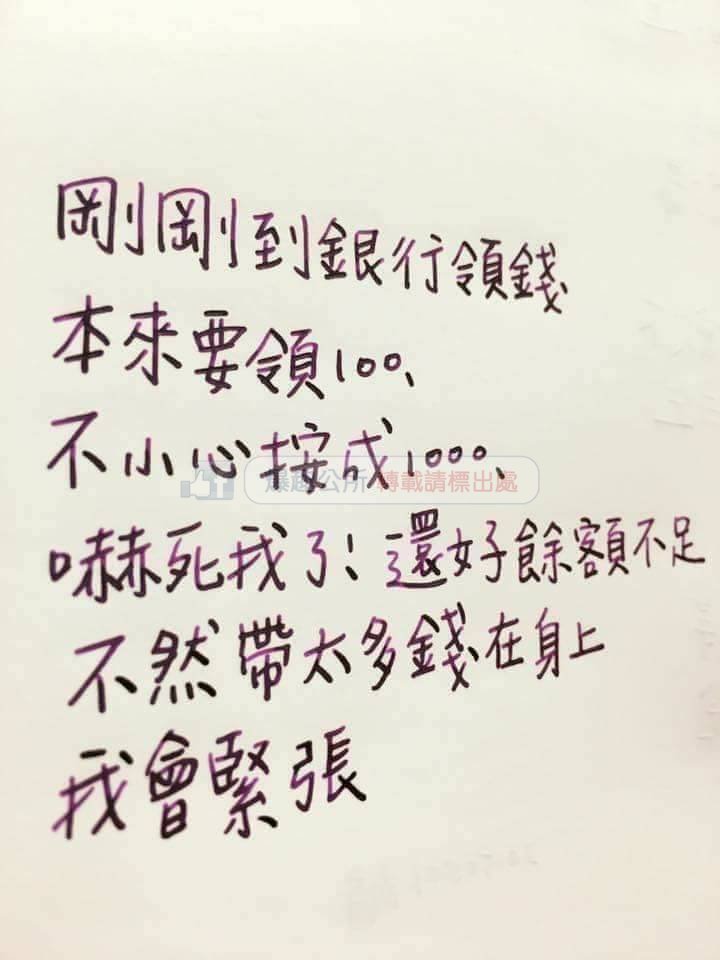 剛剛到銀行領錢
本來要領100、
不小心按成1000、
爆廢公所 轉載請標出處
嚇死我了!還好餘額不足
不然帶太多錢在身上
我會緊張